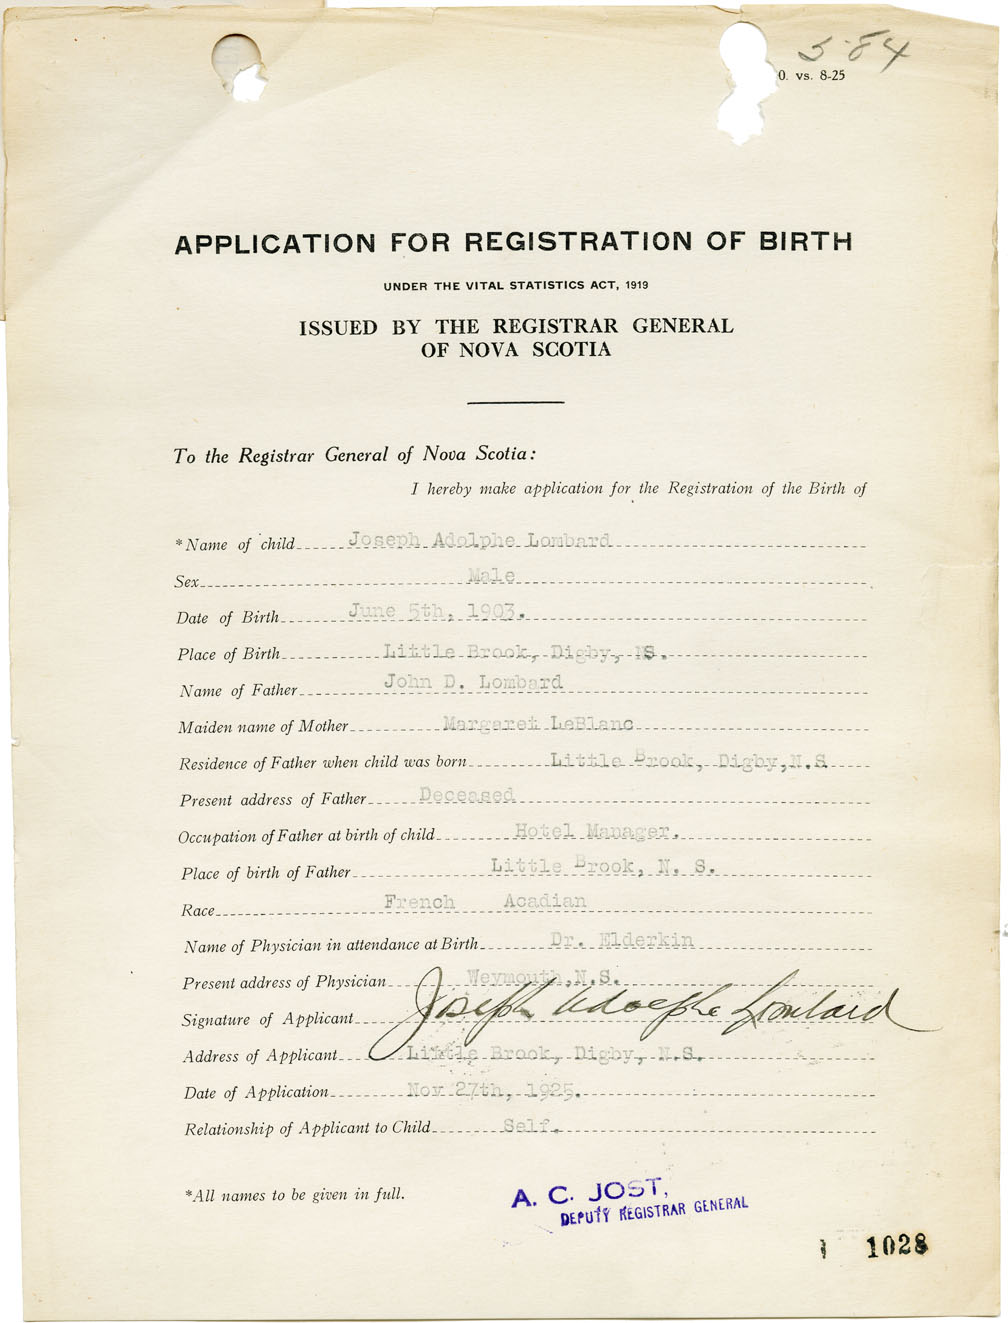 5-84
0. vs. 8-25
APPLICATION FOR REGISTRATION OF BIRTH
UNDER THE VITAL STATISTICS ACT, 1919
ISSUED BY THE REGISTRAR GENERAL
OF NOVA SCOTIA
To the Registrar General of Nova Scotia:
I hereby make application for the Registration of the Birth of
*Name of child Joseph Adolphe Lombard
Sex Male
Date of Birth June 5th, 1903.
Place of Birth Little Brook, Digby, NS.
Name of Father John D. Lombard
Maiden name of Mother Margaret LeBlanc
Residence of Father when child was born Little Brook, Digby,N.S
Present address of Father Deceased
Occupation of Father at birth of child Hotel Manager.
Place of birth of Father Little Brook, N. S.
Race French Acadian
Name of Physician in attendance at Birth Dr. Elderkin
Present address of Physician Weymouth,N.S.
Signature of Applicant Joseph Adolphe Lombard
Address of Applicant Little Brook, Digby, N.S.
Date of Application Nov 27th, 1925.
Relationship of Applicant to Child Self.
*All names to be given in full.
A. C. JOST,
DEPUTY REGISTRAR GENERAL
1028